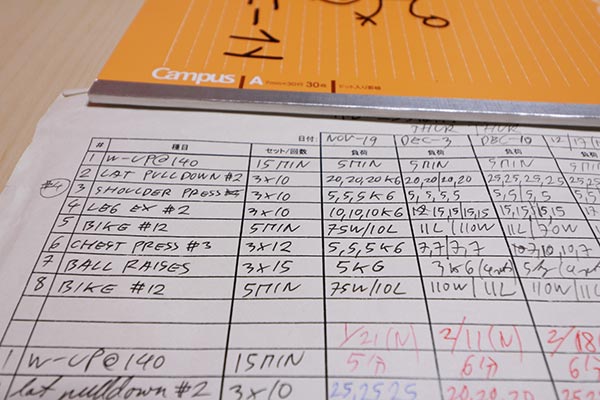 トレーニ
Campus A 7mm×30行 30枚 ドット入り罫線
THUR THUR
日付 NOV-19 DEC-3 DEC-10 12/17
# 種目 セット/回数 負荷 負荷 負荷 負荷
1 W-UP@140 15MIN 5MIN 5MIN 5MIN 5MIN
2 LAT PULLDOWN #2 3×10 20,20,20KG 20,20,20,20 25,25,25,25 25,25
#4 3 SHOULDER PRESS 3×10 5,5,5KG 5,5,5,5 5,5,5,5 5,5,5
4 LEG EX #2 3×10 10,10,10KG 15,15,15 15,15,15,15 15,15
5 BIKE #12 5MIN 75W/10L 11L/110W 11L/70W
6 CHEST PRESS #3 3×12 5,5,5KG 7,7,7,7 7,10,10,7
7 BALL RAISES 3×15 5KG 3KG
8 BIKE #12 5MIN 75W/10L 110W/11L 110W/11L 110W
1/21(N) 2/11(N) 2/18
1 W-UP@140 15MIN 5分 6分 6分
lat pulldown #2 3×10 25,25 25 20,20,20 25